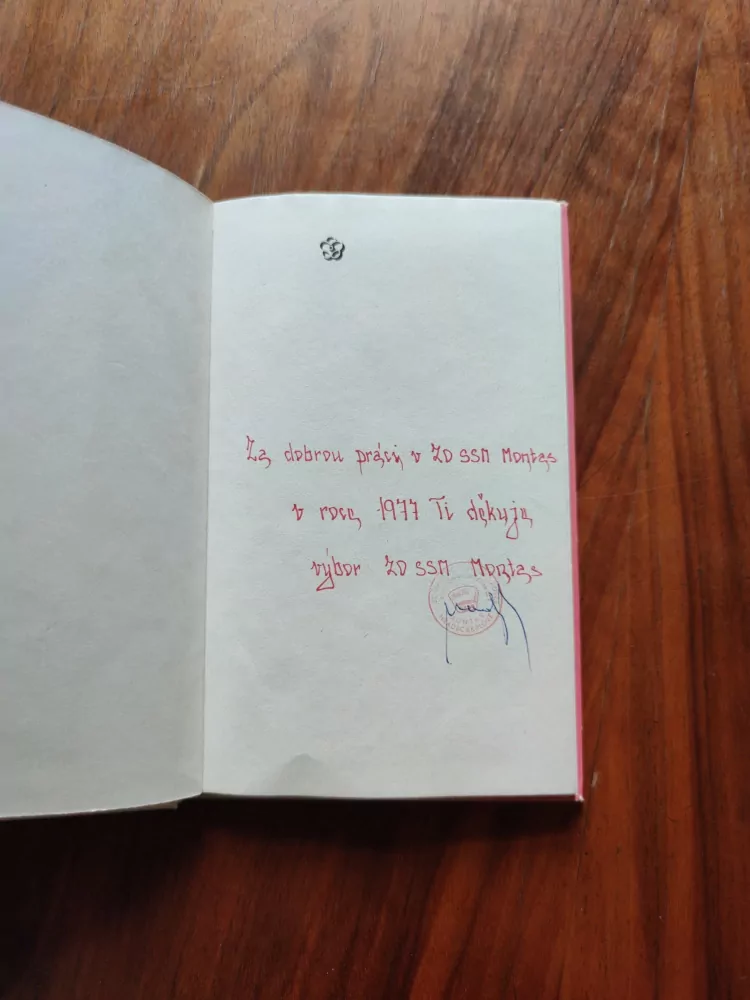 Za dobrou práci v ZO SSM Montas
v roce 1977 Ti děkuje
výbor ZO SSM Montas
MONTAS
HRADEC KRÁLOVÉ